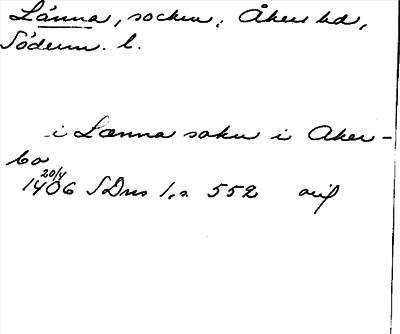 Länna, socken, Åkers hd,
Söderm. l.
i Lænna sokn i Aker-
bo
20/4
1406 SDns 1, s. 552 avskr